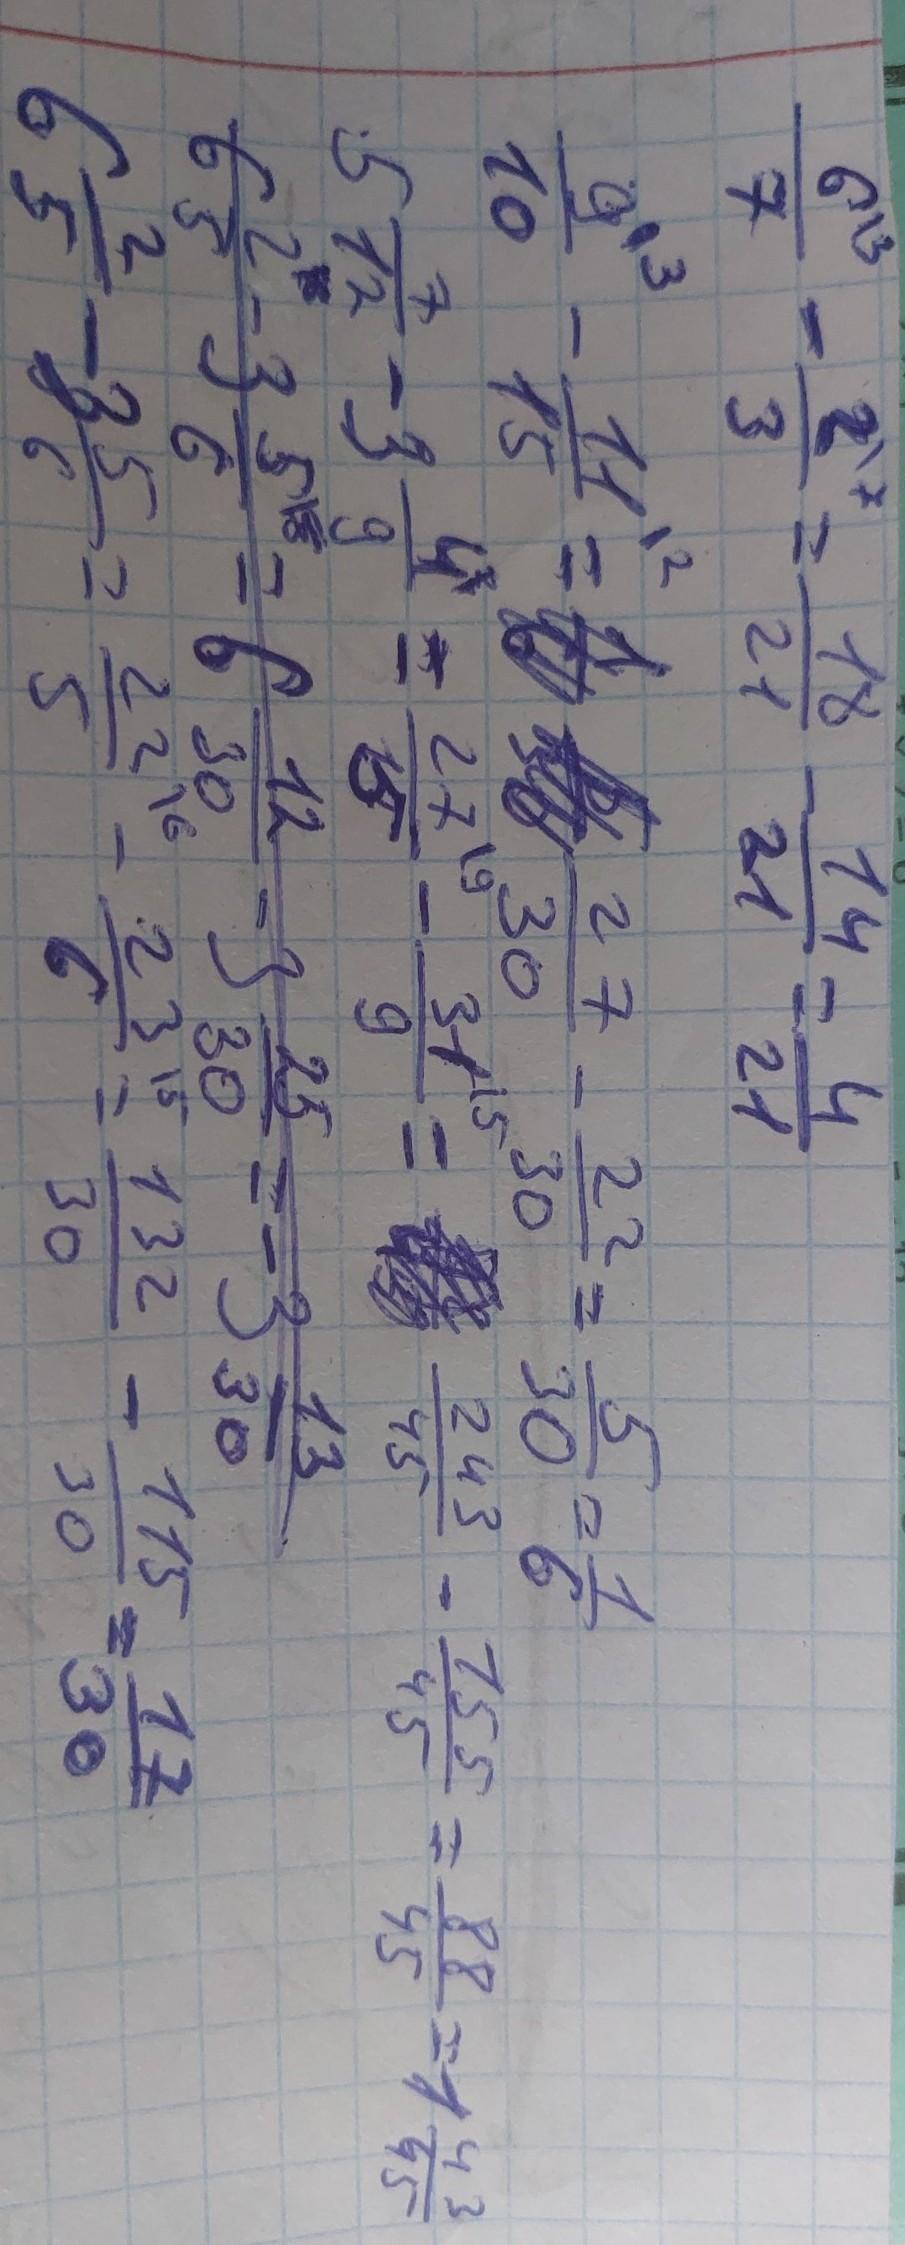 6\3/7 - 2\7/3 = 18/21 - 14/21 = 4/21
9\3/10 - 11\2/15 = 27/30 - 22/30 = 5/30 = 1/6
5 7/12 - 3 4/9 = 27\9/15 - 31\5/9 = 243/45 - 155/45 = 88/45 = 1 43/45
6 2/5 - 3 5/6 = 6 12/30 - 3 25/30 = -3 13/30
6 2/5 - 3 5/6 = 22\6/5 - 23\5/6 = 132/30 - 115/30 = 17/30